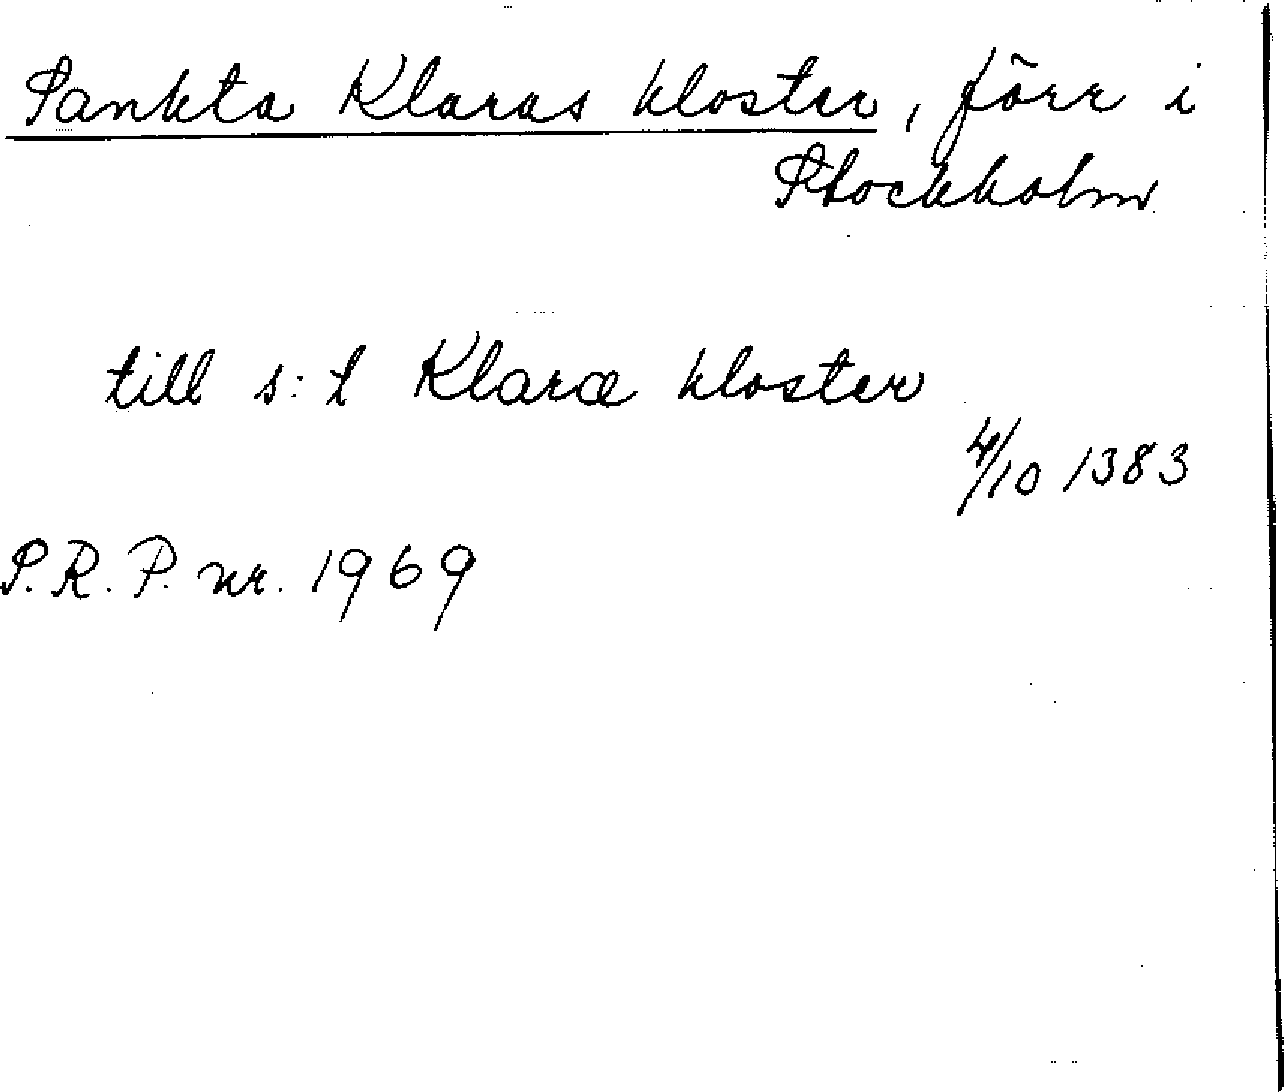 Sankta Klaras kloster, förr i
Stockholm
till s:t Kларæ kloster
4/10 1383
S.R.P. nr. 1969